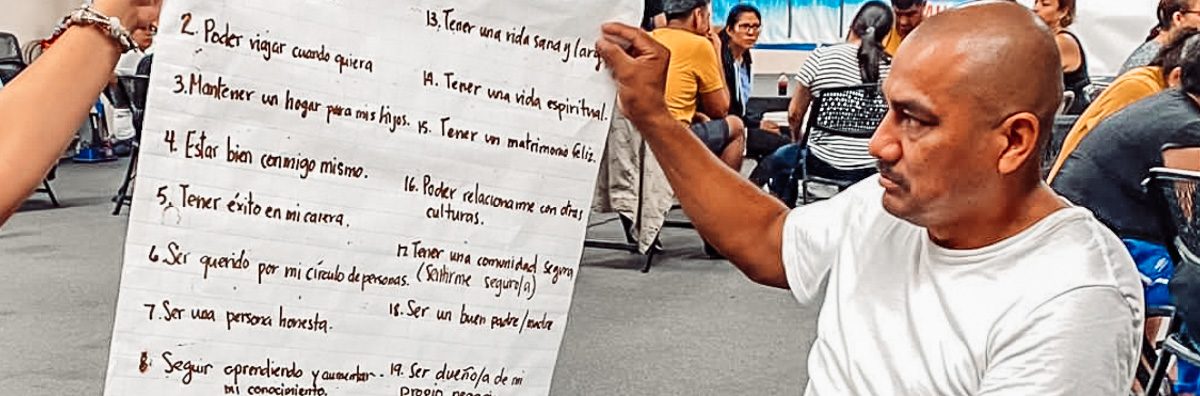 2. Poder viajar cuando quiera
3. Mantener un hogar para mis hijos.
4. Estar bien conmigo mismo.
5. Tener éxito en mi carera.
6. Ser querido por mi círculo de personas.
7. Ser una persona honesta.
8. Seguir aprendiendo y aumentar
mi conocimiento.
13. Tener una vida sana y larg
14. Tener una vida espiritual.
15. Tener un matrimonio feliz.
16. Poder relacionarme con otras
culturas.
17 Tener una comunidad segura
(Sentirme seguro/a)
18. Ser un buen padre/madre
19. Ser dueño/a de mi
propio